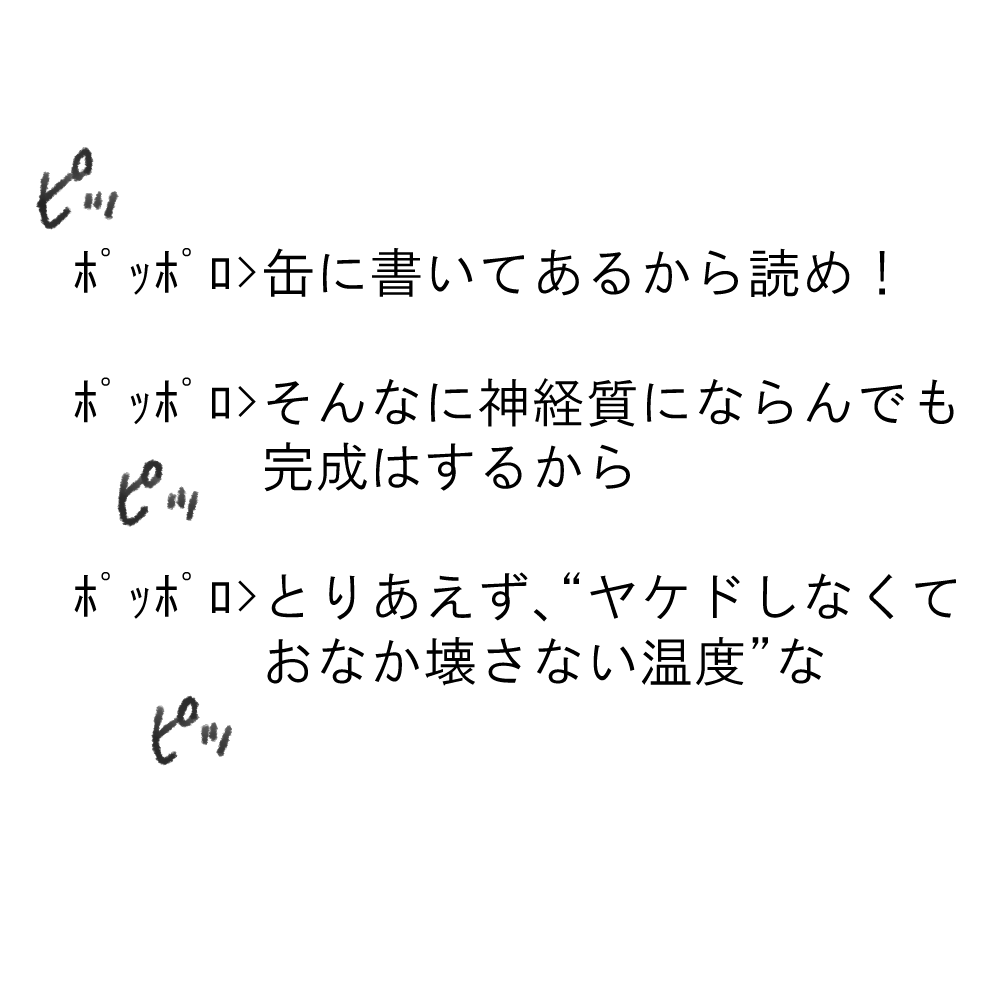 ピッ
ﾎﾟｯﾎﾟﾛ>缶に書いてあるから読め！
ﾎﾟｯﾎﾟﾛ>そんなに神経質にならんでも
完成はするから
ピッ
ﾎﾟｯﾎﾟﾛ>とりあえず、“ヤケドしなくて
おなか壊さない温度”な
ピッ